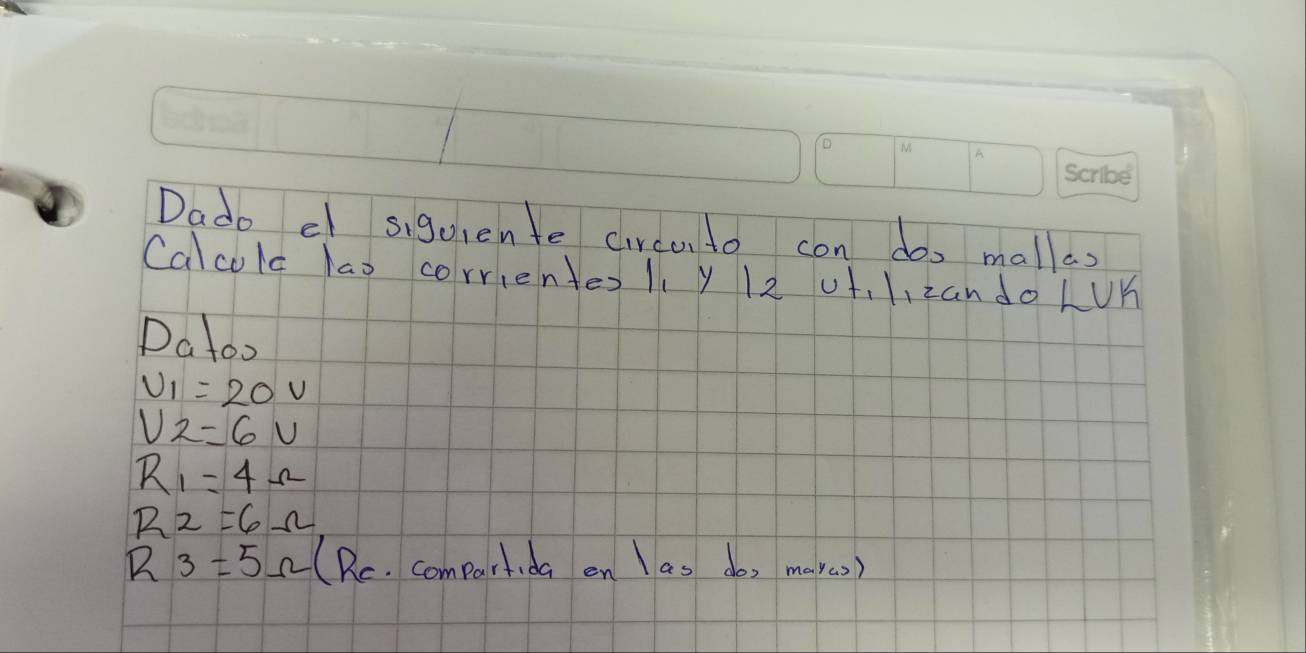 D M A
Scribe
Dado el siguiente circuito con dos mallas
Calcule las corrientes I1 y I2 utilizando LVK
Datos
V1 = 20 V
V2 = 6 V
R1 = 4 Ω
R2 = 6 Ω
R3 = 5 Ω (Rc. compartida en las dos mayas)